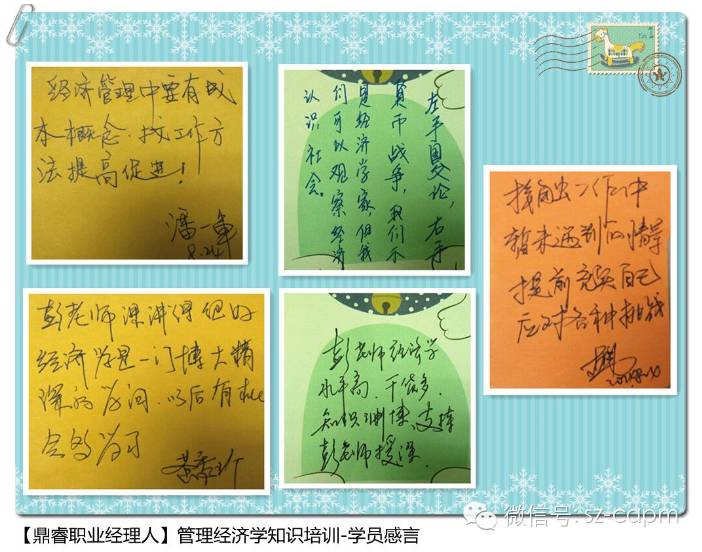 经济管理中要有成
本概念．找工作方
法提高促进！
潘一
8.24
左手国交论，右手
货币战争，我们不
是经济学家，但我
们可以观察经济
认识社会。
接触出工作中
暂未遇到的情景
提前充实自己
应对各种挑战
彭老师课讲得很好
经济学是一门博大精
深的学问．以后有机
会多学习
彭老师经济学
水平高．干货多．
知识渊博．支持
彭老师授课．
【鼎睿职业经理人】管理经济学知识培训-学员感言
微信号: sz-cdpm